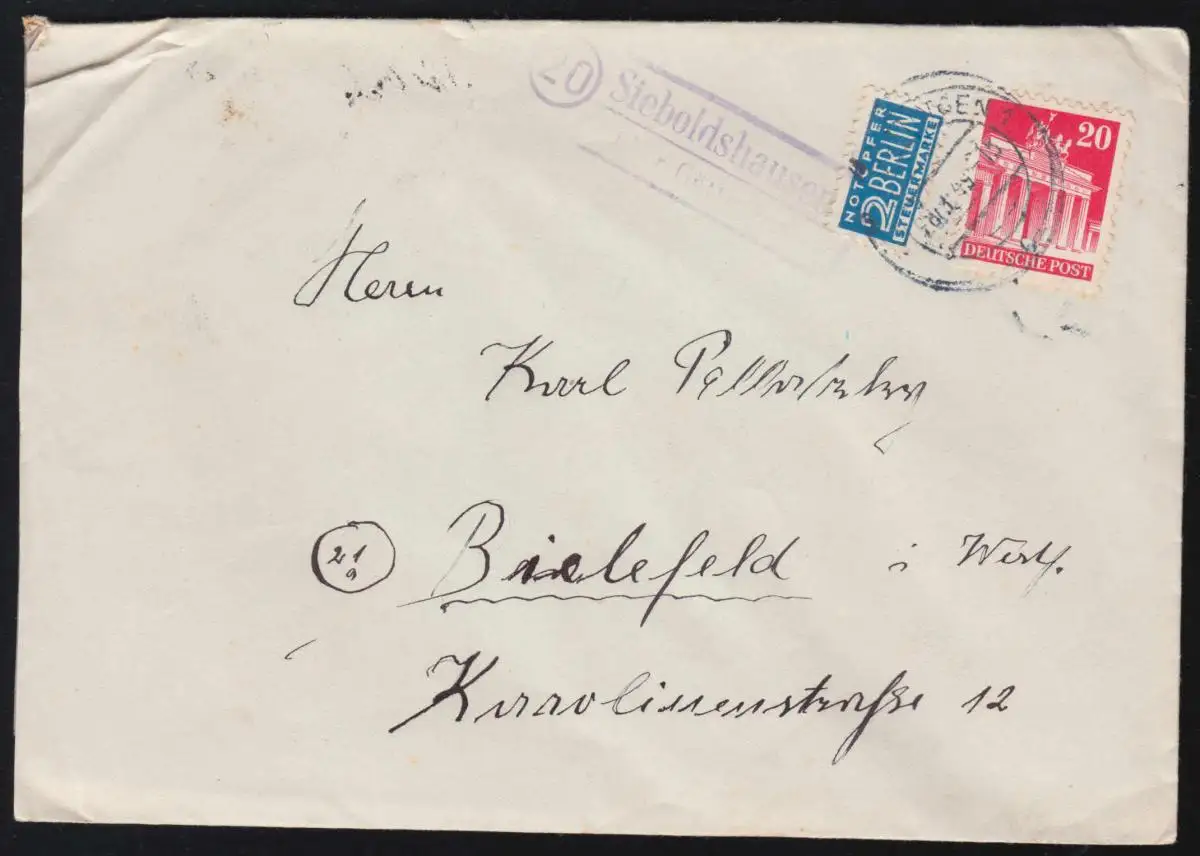 20 Sieboldshausen
NOTOPFER
2 BERLIN
STEUERMARKE
20
DEUTSCHE POST
Herrn
Karl
21a Bielefeld i Westf.
Karolinenstraße 12